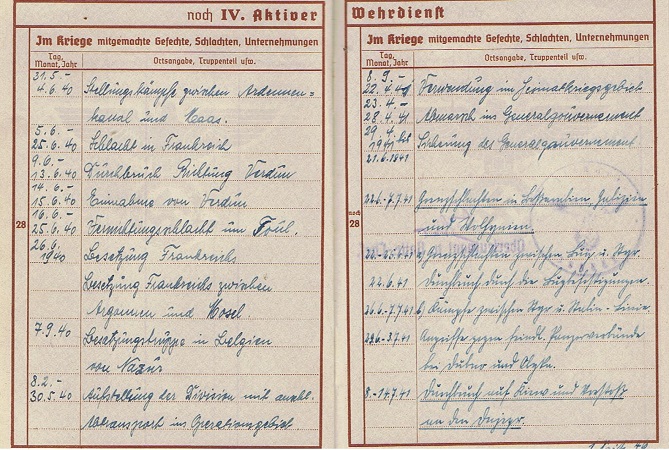 noch IV. Aktiver
Im Kriege mitgemachte Gefechte, Schlachten, Unternehmungen
Tag, Monat, Jahr
Ortsangabe, Truppenteil usw.
31.5.-
4.6.40 Stellungskämpfe zwischen Ardennen=
kanal und Maas.
5.6.-
25.6.40 Schlacht in Frankreich
9.6.-
13.6.40 Durchbruch Richtung Verdun
14.6.-
15.6.40 Einnahme von Verdun
16.6.-
25.6.40 Vernichtungsschlacht um Toul.
28
26.6.
1940 Besetzung Frankreichs
Besetzung Frankreichs zwischen
Argonnen und Mosel.
7.9.40 Besetzungstruppe in Belgien
von
8.2.-
30.5.40 Aufstellung der Division mit anschl.
Abtransport ins Operationsgebiet
Wehrdienst
Im Kriege mitgemachte Gefechte, Schlachten, Unternehmungen
Tag, Monat, Jahr
Ortsangabe, Truppenteil usw.
8.9.-
22.4.41 Verwendung im Heimatkriegsgebiet
23.4.-
28.4.41 Abmarsch ins Generalgouvernement
29.4.
1941 bis Sicherung des Generalgouvernement
21.6.1941
22.6.-7.7.41 Grenzschlachten in Galizien
noch 28
und Wolhynien
Grenzschlachten zwischen Bug u. Styr.
22.6.41 Durchbruch durch die
26.6.-7.7.41 Kämpfe zwischen Styr u. Stalin-Linie.
28.6-3.7.41 Angriffe gegen feindl. Panzerverbände
bei Dubno und
8.-14.7.41 Durchbruch auf Kiew und Vorstoß
an den Dnjepr.